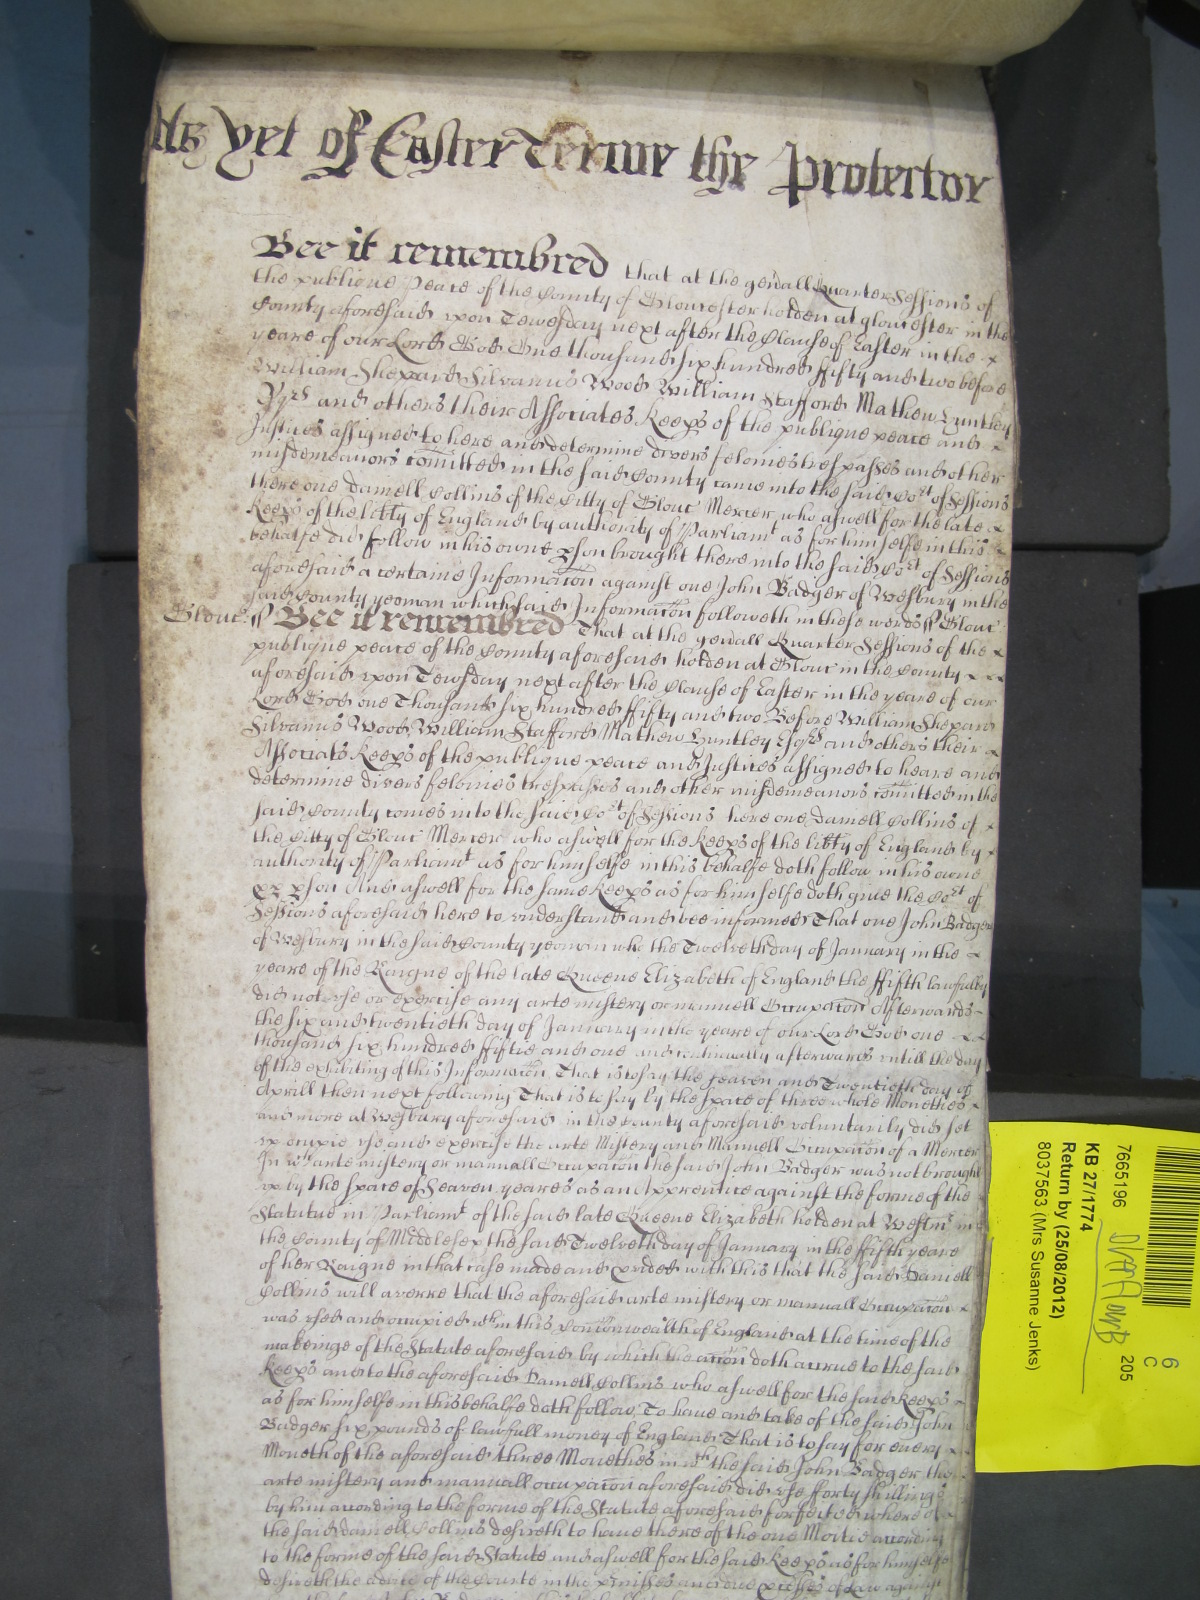 As yet of Easter Terme the Protector
Bee it remembred that at the genall Quarter Sessions of
the publique Peace of the County of Gloucester holden at Gloucester in the
County aforesaid upon Tewsday next after the Clause of Easter in the
yeare of our Lord God One thousand six hundred fifty and two before
William Shepard Silvanus Wood William Stafford Mathew Huntley
Esqrs and others their Associates Keeps of the publique peace and
Justices assigned to heare and determine divers felonies trespasses and other
misdemeanors comitted in the said County came into the said Cort of Sessions
there one Daniell Collins of the Citty of Glouc Mercer who aswell for the late
Keeps of the libty of England by authority of Parliamt as for himselfe in this
behalfe did follow in his owne pson brought there into the said Cort of Sessions
aforesaid a certaine Informacon against one John Badger of Wesbury in the
said County yeoman which said Informacon followeth in these words ss Glouc
Glouc ss Bee it remembred That at the genall Quarter Sessions of the
publique peace of the County aforesaid holden at Glouc in the County
aforesaid upon Tewsday next after the Clause of Easter in the yeare of our
Lord God one Thousand six hundred fifty and two Before William Shepard
Silvanus Wood William Stafford Mathew Huntley Esqrs and others their
Associats Keeps of the publique peace and Justices assigned to heare and
determine divers felonies trespasses and other misdemeanors comitted in the
said County comes into the said Cort of Sessions here one Daniell Collins of
the Citty of Glouc Mercer who aswell for the Keeps of the libty of England by
authority of Parliamt as for himselfe in this behalfe doth follow in his owne
pson And aswell for the same Keeps as for himselfe doth give the Cort of
Sessions aforesaid here to understand and bee informed That one John Badger
of Wesbury in the said County yeoman who the Twelveth day of January in the
yeare of the Raigne of the late Queene Elizabeth of England the fifth lawfully
did not use or exercise any arte mistery or mannell Occupacon Afterwards
the six and twentieth day of January in the yeare of our Lord God one
thousand six hundred fiftie and one and continually afterwards untill the day
of the exhibiting of this Informacon That is to say the seaven and Twentieth day of
Aprill then next following That is to say by the space of three whole Moneths
and more at Wesbury aforesaid in the County aforesaid voluntarily did set
up occupie use and exercise the arte Mistery and Mannell Occupacon of a Mercer
In wch arte mistery or manuall Occupacon the said John Badger was not brought
up by the space of Seaven yeares as an Apprentice against the forme of the
Statute in Parliamt of the said late Queene Elizabeth holden at Westmr in
the County of Middlesex the said Twelveth day of January in the fifth yeare
of her Raigne in that case made and pvided with this that the said Daniell
Collins will averre that the aforesaid arte mistery or manuall Occupacon
was used and occupied wthin this Comonwealth of England at the time of the
makeinge of the Statute aforesaid by which the accon doth accrue to the said
Keeps and to the aforesaid Daniell Collins who aswell for the said Keeps
as for himselfe in this behalfe doth follow To have and take of the said John
Badger six pounds of lawfull money of England That is to say for every
Moneth of the aforesaid three Moneths in wch the said John Badger the
arte mistery and manuall occupacon aforesaid did use forty shillings
by him according to the forme of the Statute aforesaid forfeited whereof
the said Daniell Collins desireth to have thereof the one Moitie according
to the forme of the said Statute and aswell for the said Keeps as for himselfe
desireth the advice of the Courte in the pmisses and due pcesse of Law against
7665196
6
C
205
KB 27/1774
Return by (25/08/2012)
8037563 (Mrs Susanne Jenks)